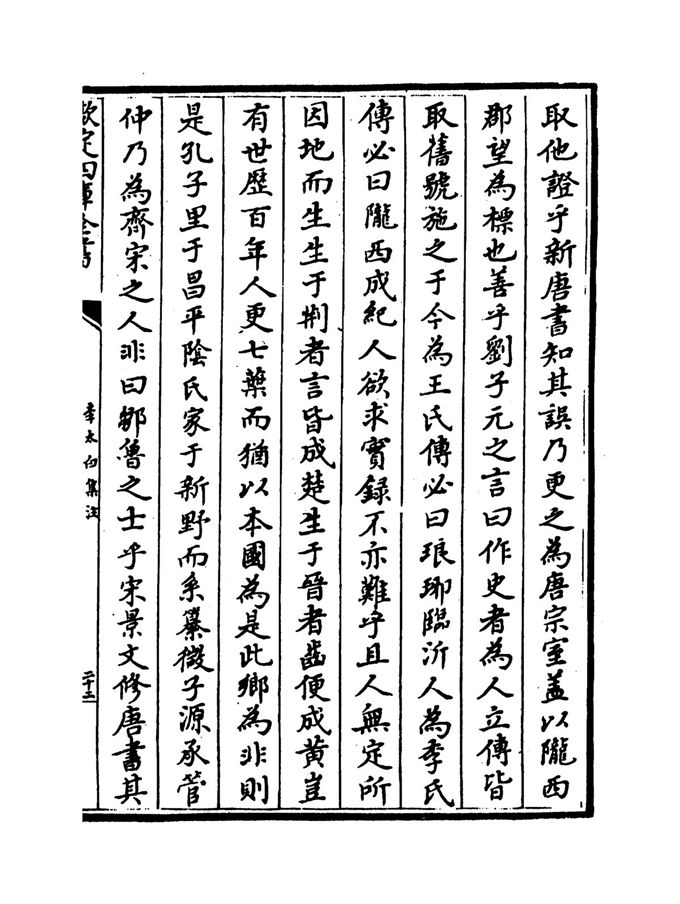 取他證乎新唐書知其誤乃更之為唐宗室蓋以隴西
郡望為標也善乎劉子元之言曰作史者為人立傳皆
取舊號施之于今為王氏傳必曰琅琊臨沂人為李氏
傳必曰隴西成紀人欲求實録不亦難乎且人無定所
因地而生生于荆者言皆成楚生于晉者齒便成黄豈
有世歴百年人更七葉而猶以本國為是此鄉為非則
是孔子里于昌平陰氏家于新野而系纂微子源承管
仲乃為齊宋之人非曰鄒魯之士乎宋景文修唐書其
欽定四庫全書
李太白集注
二十二